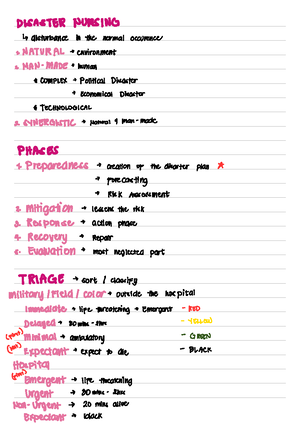 DISASTER NURSING
↳ disturbance in the normal occurence
1. NATURAL → environment
2. MAN-MADE → human
* COMPLEX → Political Disaster
→ Economical Disaster
* TECHNOLOGICAL
3. SYNERGISTIC → Natural & man-made
PHASES
1. Preparedness → creation of the disaster plan ★
→ Forecasting
→ Risk Assessment
2. Mitigation → lessens the risk
3. Response → action phase
4. Recovery → Repair
5. Evaluation → most neglected part
TRIAGE → sort / classify
military / Field / color → outside the hospital
Immediate → life threatening → Emergent - RED
Delayed → 30 mins - 2hrs - YELLOW
Minimal → ambulatory - GREEN
Expectant → expect to die - BLACK
Hospital
Emergent → life threatening
Urgent → 30 mins - 2hrs
Non-Urgent → 20 mins
Expectant → black